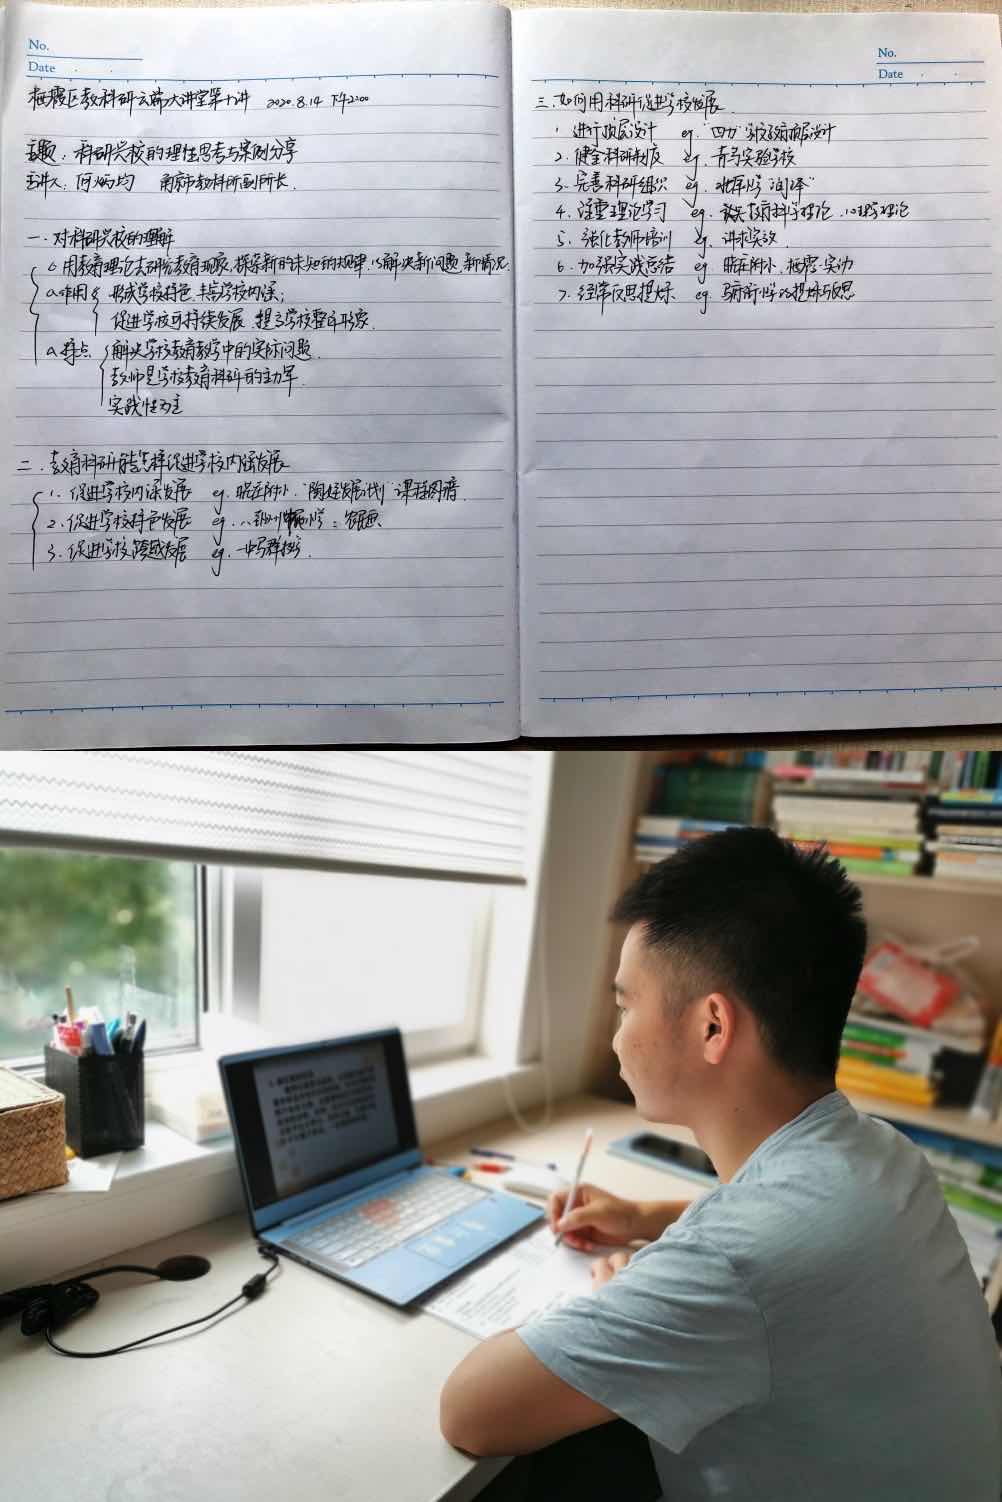 No.
Date
栖霞区教科研云端大讲堂第十讲 2020.8.14 下午2:00
主题：科研兴校的理性思考与案例分享
主讲人：何炳均 南京市教科所副所长.
一、对科研兴校的理解
用教育理论去研究教育现象,探索新的未知的规律,以解决新问题、新情况.
作用 形成学校特色,丰富学校内涵;
促进学校可持续发展,提高学校整体形象.
特点 解决学校教育教学中的实际问题.
教师是学校教育科研的主力军.
实践性为主
二、教育科研能怎样促进学校内涵发展
1. 促进学校内涵发展 eg. 晓庄附小."陶娃发展计划"课程图谱.
2. 促进学校特色发展 eg.
3. 促进学校跨越发展 eg.
No.
Date
三、如何用科研促进学校发展
1. 进行顶层设计 eg. 学校教育顶层设计
2. 健全科研制度 eg. 实验学校
3. 完善科研组织 eg.
4. 注重理论学习 eg. 教育科学理论、心理学理论
5. 强化教师培训 eg. 讲求实效.
6. 加强实践总结 eg. 晓庄附小、栖霞实幼
7. 经常反思提炼 eg. 小学的提炼与反思